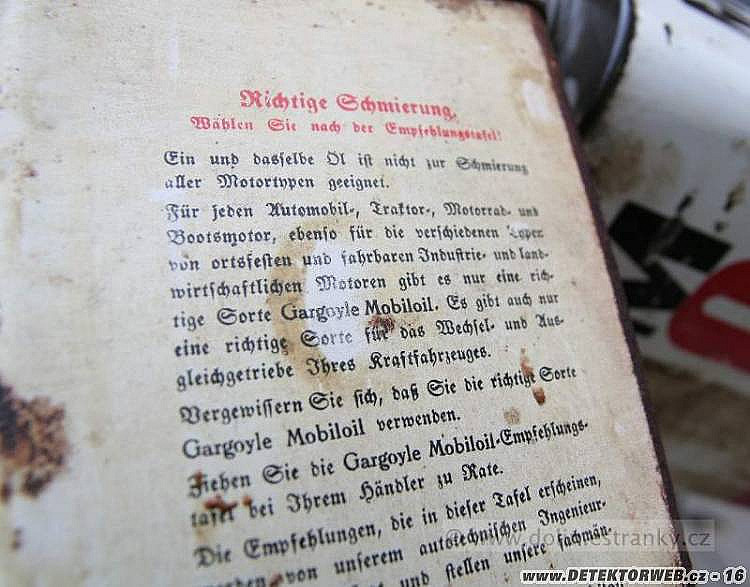 Richtige Schmierung.
Wählen Sie nach der Empfehlungstafel!
Ein und dasselbe Öl ist nicht zur Schmierung
aller Motortypen geeignet.
Für jeden Automobil-, Traktor-, Motorrad- und
Bootsmotor, ebenso für die verschiedenen
von ortsfesten und fahrbaren Industrie- und land-
wirtschaftlichen Motoren gibt es nur eine rich-
tige Sorte Gargoyle Mobiloil. Es gibt auch nur
eine richtige Sorte für das Wechsel- und Aus-
gleichgetriebe Ihres Kraftfahrzeuges.
Vergewissern Sie sich, daß Sie die richtige Sorte
Gargoyle Mobiloil verwenden.
Ziehen Sie die Gargoyle Mobiloil-Empfehlungs-
tafel bei Ihrem Händler zu Rate.
Die Empfehlungen, die in dieser Tafel erscheinen,
von unserem autotechnischen Ingenieur-
und stellen unsere fachmän-
www.DETEKTORWEB.cz - 16